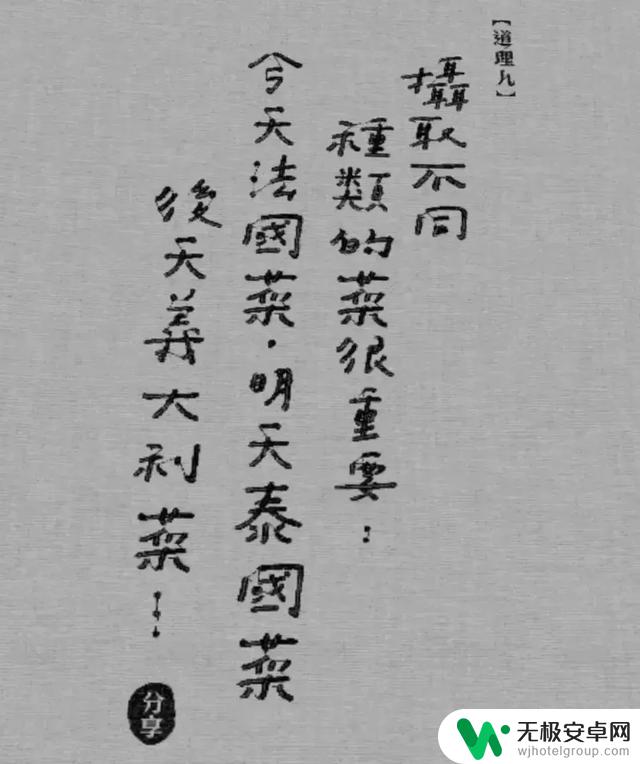 【道理九】
攝取不同
種類的菜很重要：
今天法國菜·明天泰國菜
後天義大利菜…
分享
无极安卓网
wjhotelgroup.com